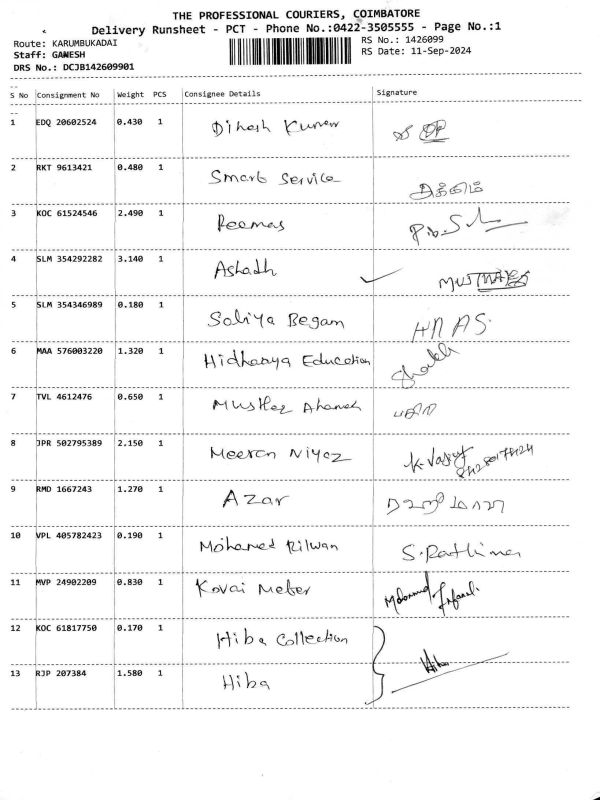 THE PROFESSIONAL COURIERS, COIMBATORE
Delivery Runsheet - PCT - Phone No.:0422-3505555 - Page No.:1
Route: KARUMBUKADAI RS No.: 1426099
Staff: GANESH RS Date: 11-Sep-2024
DRS No.: DCJB142609901
S No Consignment No Weight PCS Consignee Details Signature
1 EDQ 20602524 0.430 1 Dinesh Kumar
2 RKT 9613421 0.480 1 Smart Service
3 KOC 61524546 2.490 1 Reemas
4 SLM 354292282 3.140 1 Ashadh
5 SLM 354346989 0.180 1 Begam HNAS.
6 MAA 576003220 1.320 1 Hidhaaya Education
7 TVL 4612476 0.650 1
8 JPR 502795389 2.150 1 Meeran Niyaz
9 RMD 1667243 1.270 1 Azar
10 VPL 405782423 0.190 1 Mohamed Rilwan
11 MVP 24902209 0.830 1 Kovai Meter
12 KOC 61817750 0.170 1 Hiba Collection
13 RJP 207384 1.580 1 Hiba